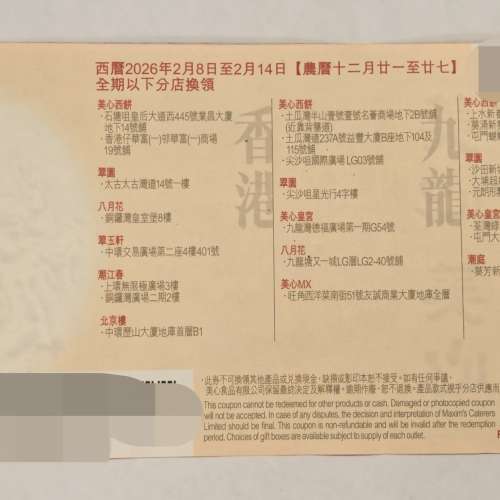 西曆2026年2月8日至2月14日【農曆十二月廿一至廿七】
全期以下分店換領
香港
美心西餅
·石塘咀皇后大道西445號業昌大廈
地下14號舖
·香港仔華富(一)邨華富(一)商場
19號舖
翠園
·太古太古灣道14號一樓
八月花
·銅鑼灣皇室堡8樓
翠玉軒
·中環交易廣場第二座4樓401號
潮江春
·上環無限極廣場3樓
·銅鑼灣廣場二期2樓
北京樓
·中環歷山大廈地庫首層B1
九龍
美心西餅
·土瓜灣半山壹號壹號名薈商場地下2B號舖
(近靠背壟道)
·土瓜灣道237A號益豐大廈B座地下104及
115號舖
·尖沙咀國際廣場LG03號舖
翠園
·尖沙咀星光行4字樓
美心皇宮
·九龍灣德福廣場第一期G54號
八月花
·九龍塘又一城LG層LG2-40號舖
美心MX
·旺角西洋菜南街51號友誠商業大廈地庫全層
美心西
·上水新
·葵涌新
·屯門
翠園
·沙田新
·大埔超
·元朗形
美心皇
·荃灣綠
·屯門大
潮庭
·葵芳新
·此券不可換領其他產品或兌換現金，缺損或影印本恕不接受。如有任何爭議，
美心食品有限公司保留最終決定及解釋權。逾期作廢，恕不退換。產品款式視乎分店供應而
This coupon cannot be redeemed for other products or cash. Damaged or photocopied coupon
will not be accepted. In case of any disputes, the decision and interpretation of Maxim's Caterers
Limited should be final. This coupon is non-refundable and will be invalid after the redemption
period. Choices of gift boxes are available subject to supply of each outlet.